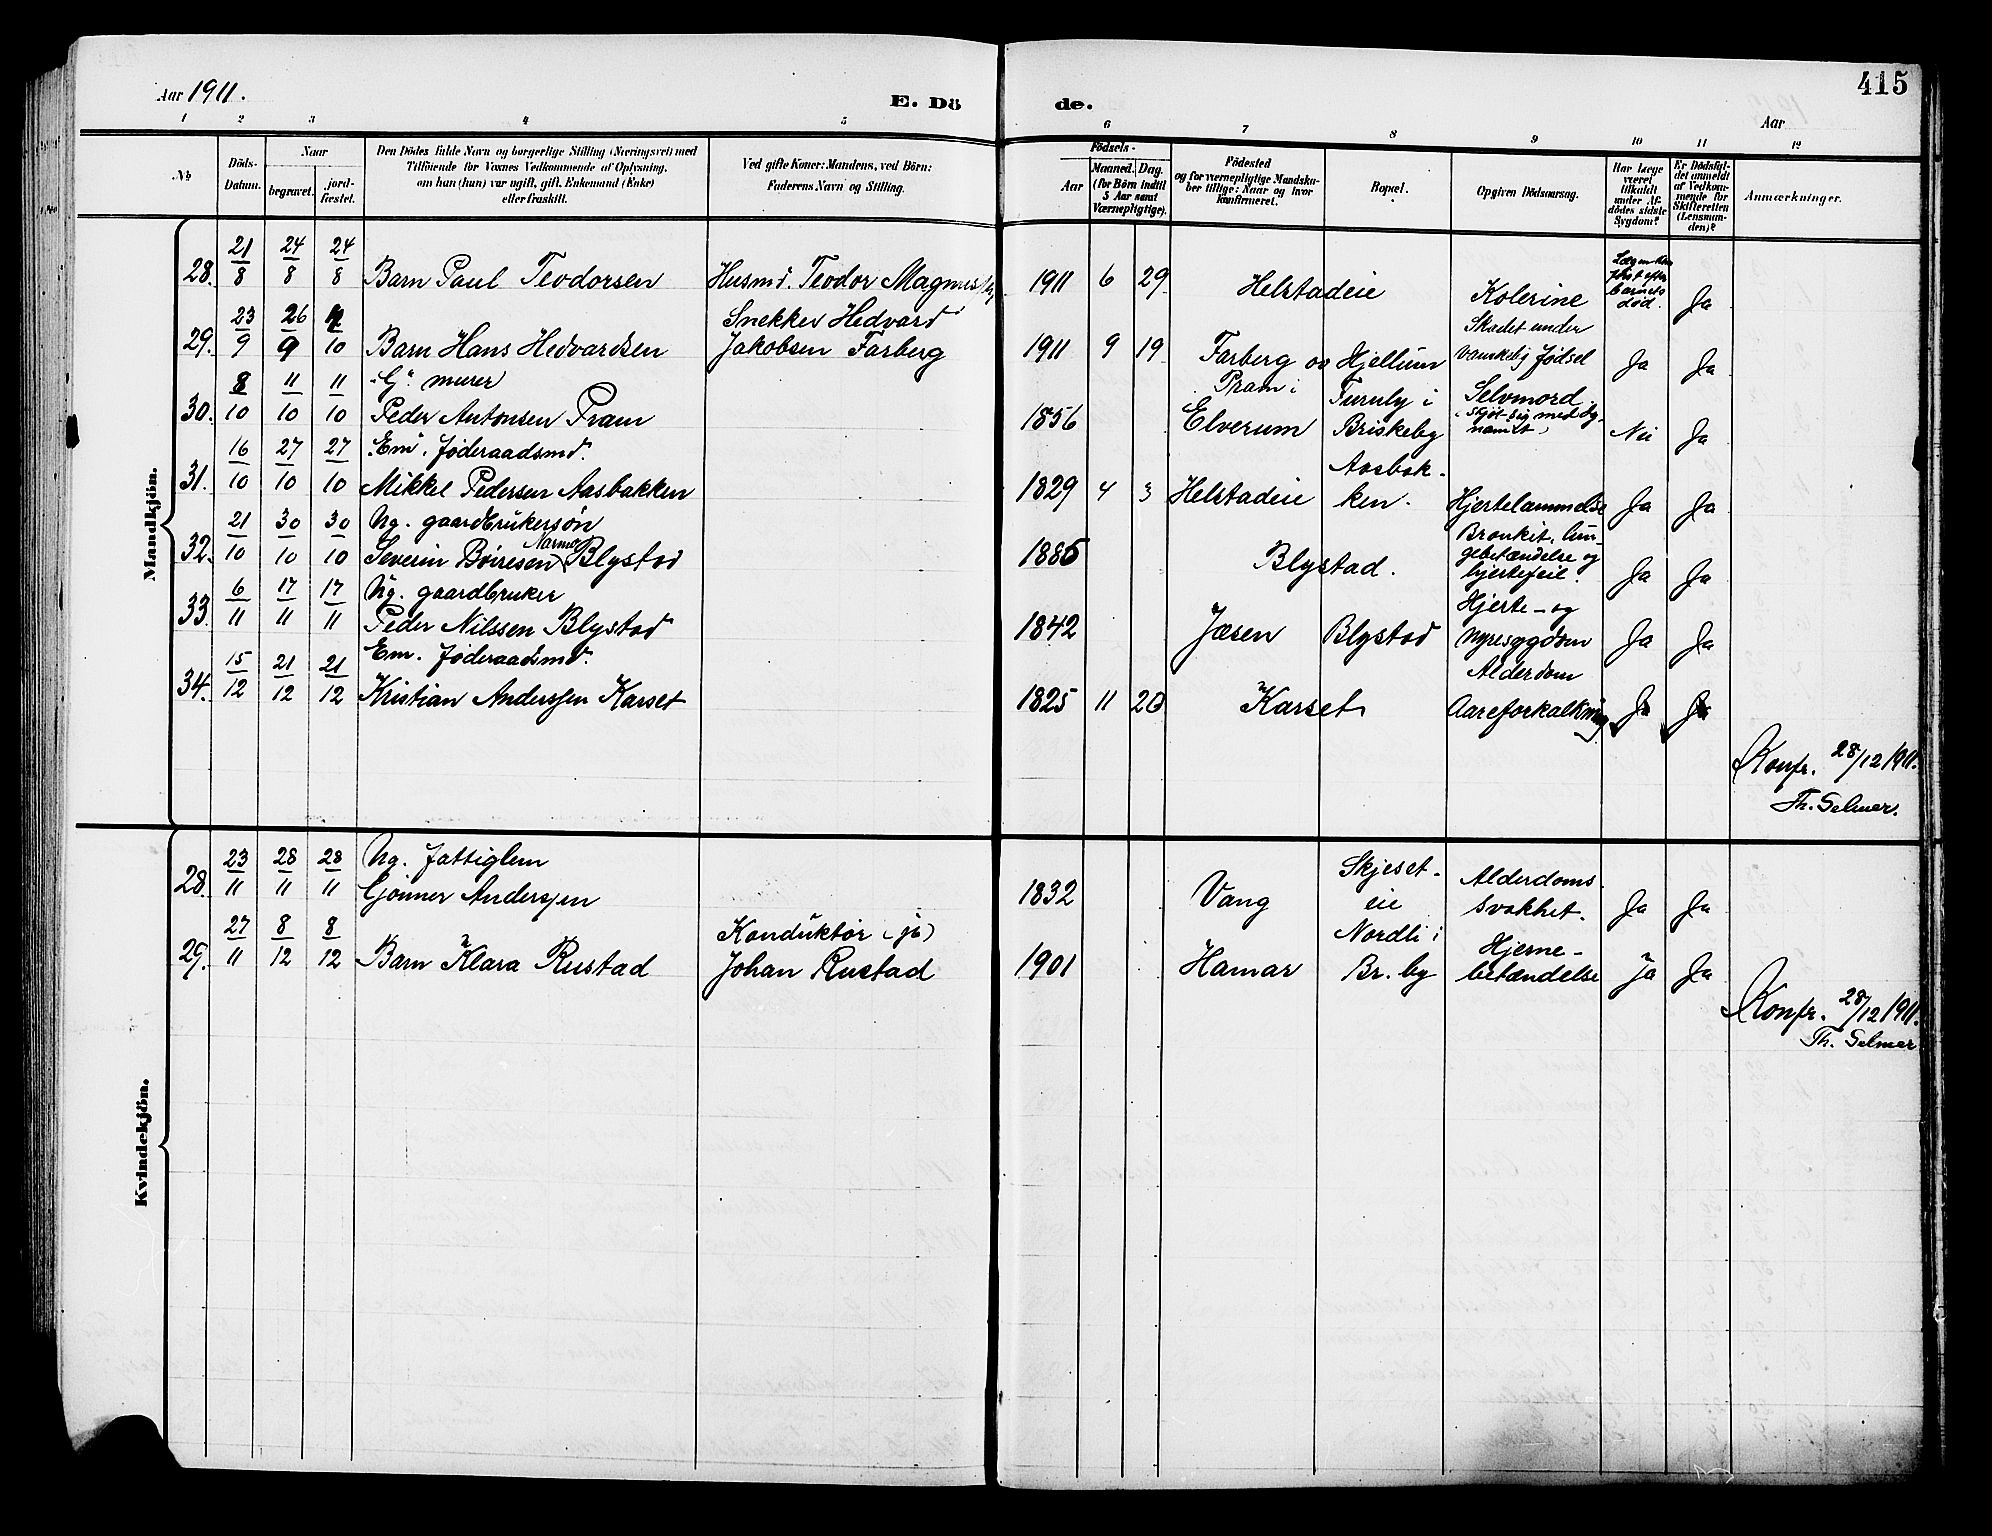 415
Aar 1911.
E. Döde.
Aar
1 2 3 4 5 6 7 8 9 10 11 12
No
Döds-Datum.
Naar
begravet.
jord-fæstet.
Den Dödes fulde Navn og borgerlige Stilling (Næringsvei) med
Tilföiende for Voxnes Vedkommende af Oplysning,
om han (hun) var ugift, gift, Enkemand (Enke)
eller fraskilt.
Ved gifte Koner: Mandens, ved Börn:
Faderens Navn og Stilling.
Födsels-
Aar
Maaned. Dag.
(for Börn indtil
5 Aar samt
Værnepligtige).
Födested
og for værnepligtige Mandska-
ber tillige: Naar og hvor
konfirmeret.
Bopæl.
Opgiven Dödsaarsag.
Har Læge
været
tilkaldt
under Af-
dödes sidste
Sygdom?
Er Dödsfal-
det anmeldt
af Vedkom-
mende for
Skifteretten
(Lensman-
den)?
Anmærkninger.
Mandkjön.
28. 21/8 24/8 24/8 Barn Paul Teodorsen Husmd. Teodor Magnus 1911 6 29 Helstadeie Kolerine
Lægen kom
først efter
barnets
død. Ja
29. 23/9 26/9 4/10 Barn Hans Hedvardsen
Snekker Hedvard
Jakobsen Farberg 1911 9 19 Farberg ov Hjellum
Skadet under
vanskelig fødsel Ja Ja
30. 8/10 11/10 11/10 "G" murer
Peder Antonsen Pram 1856
Pram i
Elverum
Furuly i
Briskeby
Selvmord
(skjöt sig med dy-
namit) Nei Ja
31. 16/10 27/10 27/10 Em. føderaadsmd.
Mikkel Pedersen Aasbakken 1829 4 3 Helstadeie
Aasbak-
ken. Hjertelammelse Ja Ja
32. 21/10 30/10 30/10 Ug. gaardbrukersøn
Severin Böiresen Narmo Blystad 1885 Blystad.
Bronkit, lun-
gebetændelse og
hjertefeil. Ja Ja
33. 6/11 17/11 17/11 Ug. gaardbruker
Peder Nilssen Blystad 1842 Jæsen Blystad
Hjerte- og
nyresygdom Ja Ja
34. 15/12 21/12 21/12 Em. føderaadsmd.
Kristian Anderssen Karset 1825 11 20 Karset
Alderdom
Aareforkalkning Ja Ja
Konfr. 28/12 1911.
Th. Selmer.
Kvindekjön.
28. 23/11 28/11 28/11 Ug. fattiglem
Gönner Anderssen 1832 Vang
Skjeset-
eie
Alderdoms
svakhet. Ja Ja
29. 27/11 8/12 8/12 Barn Klara Rustad
Konduktør (jb)
Johan Rustad 1901 Hamar
Nordli i
Br. by
Hjerne-
betændelse Ja Ja
Konfr. 28/12 1911.
Th. Selmer